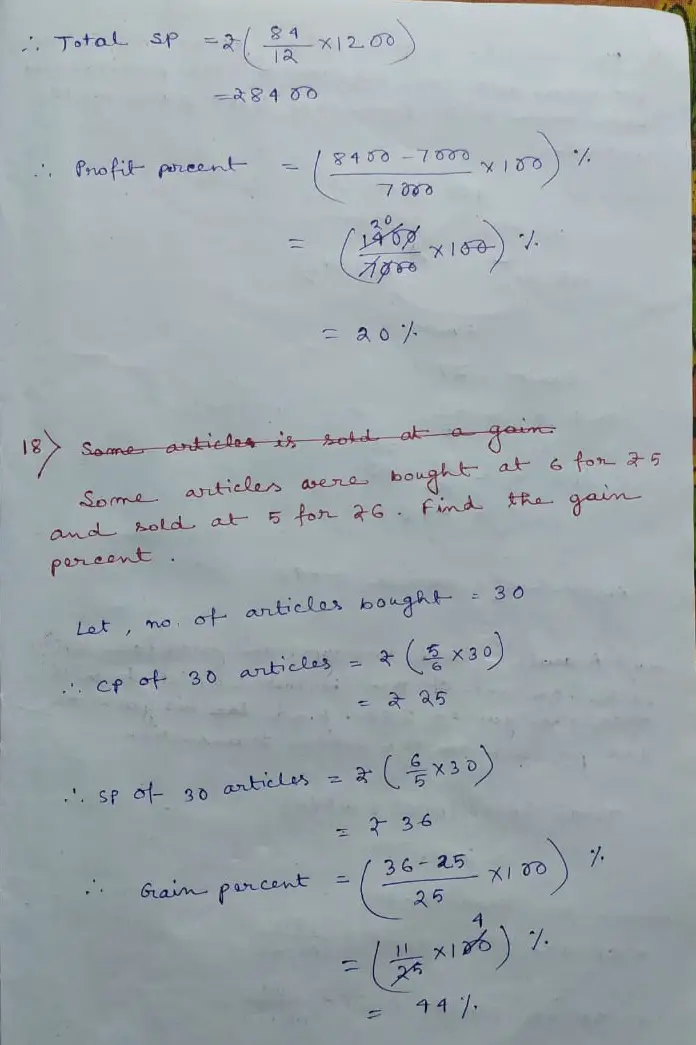 ∴ Total SP = ₹ ( 84/12 × 1200 )
= ₹ 8400
∴ Profit percent = ( (8400 - 7000)/7000 × 100 ) %
20
= ( 1400/7000 × 100 ) %
= 20 %
18) Some articles is sold at a gain
Some articles were bought at 6 for ₹ 5
and sold at 5 for ₹ 6. Find the gain
percent.
Let, no. of articles bought = 30
∴ CP of 30 articles = ₹ ( 5/6 × 30 )
= ₹ 25
∴ SP of 30 articles = ₹ ( 6/5 × 30 )
= ₹ 36
∴ Gain percent = ( (36 - 25)/25 × 100 ) %
4
= ( 11/25 × 100 ) %
= 44 %